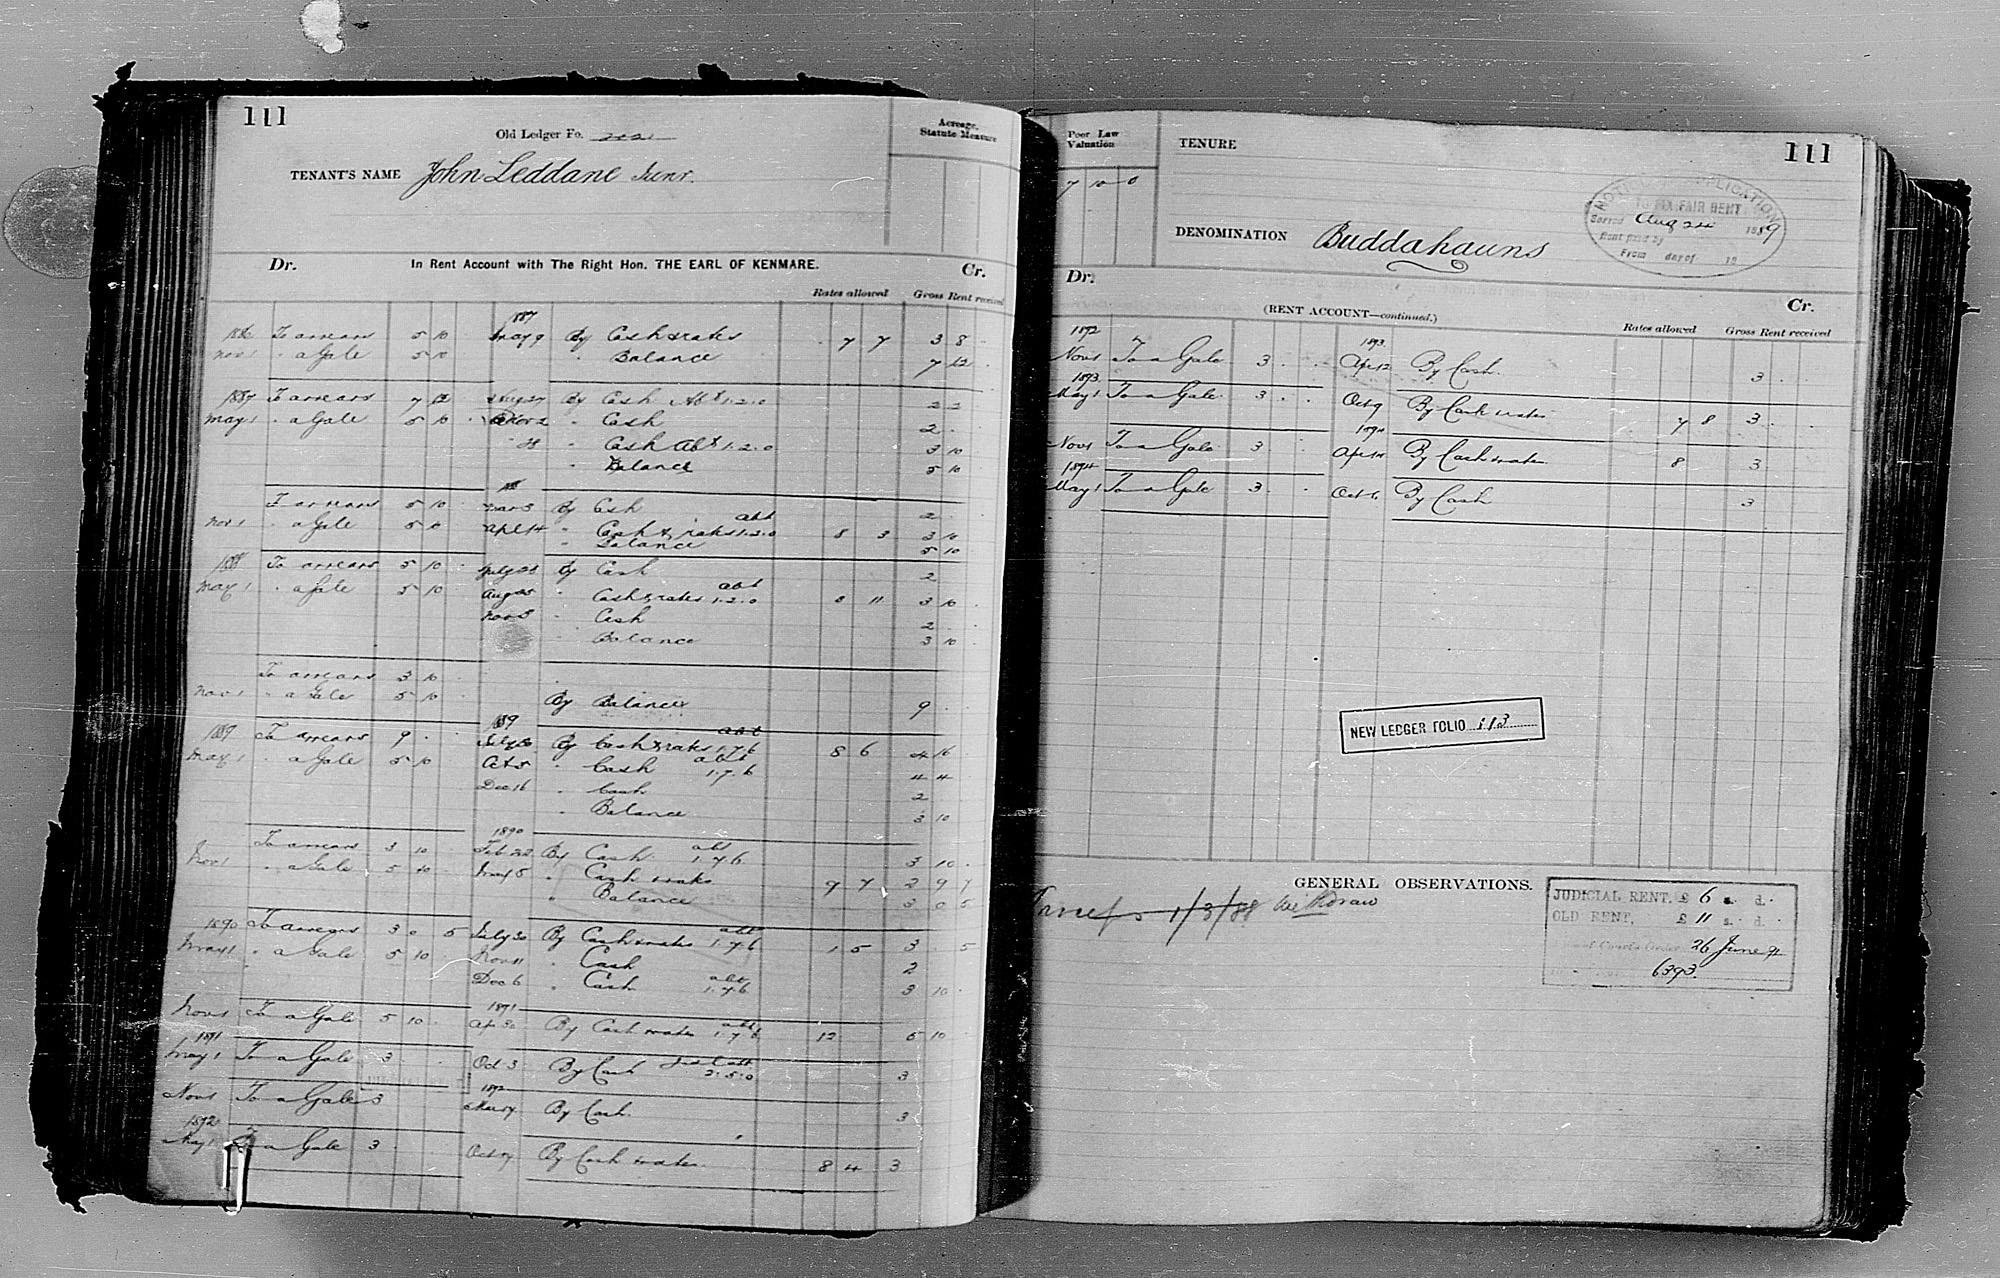 111
Old Ledger Fo.
Acreage, Statute Measure
TENANT'S NAME John Leddane Junr.
Dr. In Rent Account with The Right Hon. THE EARL OF KENMARE. Cr.
Rates allowed Gross Rent received
1887
1886 To arrears 5 10 May 9 By Cash & rates 7 7 3 8
Nov 1 " a Gale 5 10 " Balance 7 12
1887 To arrears 7 12 Aug 27 By Cash Abt 1.2.0 2 2
May 1 " a Gale 5 10 " Cash 2
" 28 " Cash Abt 1.2.0 3 10
" Balance 5 10
To arrears 5 10 Mar 3 By Cash 2
abt
Nov 1 " a Gale 5 10 Apl 14 " Cash & rates 1.2.0 8 3 3 10
" Balance 5 10
1888 To arrears 5 10 July 28 By Cash 2
abt
May 1 " a Gale 5 10 Aug 25 " Cash & rates 1.2.0 8 11 3 10
Nov 3 " Cash 2
" Balance 3 10
To arrears 3 10
Nov 1 " a Gale 5 10 By Balance 9
1889 abt
1889 To arrears 9 July 20 By Cash & rates 1.7.6 8 6 4 16
abt
May 1 " a Gale 5 10 Oct 5 " Cash 1.7.6 4 4
Dec 16 " Cash 2
" Balance 3 10
1890 abt
To arrears 3 10 Feb 22 By Cash 1.7.6 3 10
Nov 1 " a Gale 5 10 May 5 " Cash & rates 9 7 2 9 7
" Balance 3 0 5
abt
1890 To arrears 3 0 5 July 30 By Cash & rates 1.7.6 1 5 3 5
May 1 " a Gale 5 10 Nov 11 " Cash 2
abt
Dec 6 " Cash 1.7.6 3 10
1891 abt
Nov 1 To a Gale 5 10 Ap 30 By Cash & rates 1.7.6 12 5 10
1891
May 1 To a Gale 3 Oct 3 By Cash 2.5.0 3
1892
Nov 1 To a Gale 3 By Cash 3
1892
May 1 To a Gale 3 Oct 7 By Cash & rates 8 4 3
Poor Law Valuation
7 10 0
TENURE
111
NOTICE OF APPLICATION
TO FIX FAIR RENT
Served Aug 24 1889
Rent paid by
From day of 18
DENOMINATION Buddahauns
Dr. Cr.
(RENT ACCOUNT—continued.)
Rates allowed Gross Rent received
1892 1893
Nov 1 To a Gale 3 Apr 12 By Cash 3
1893
May 1 To a Gale 3 Oct 9 By Cash & rates 7 8 3
1894
Nov 1 To a Gale 3 Apr 14 By Cash & rates 8 3
1894
May 1 To a Gale 3 Oct 6 By Cash 3
NEW LEDGER FOLIO 113
GENERAL OBSERVATIONS.
1/3/88 Withdraw
JUDICIAL RENT, £ 6 s. d.
OLD RENT, £ 11 s. d.
Date of Court's Order, 26 June 91
6393